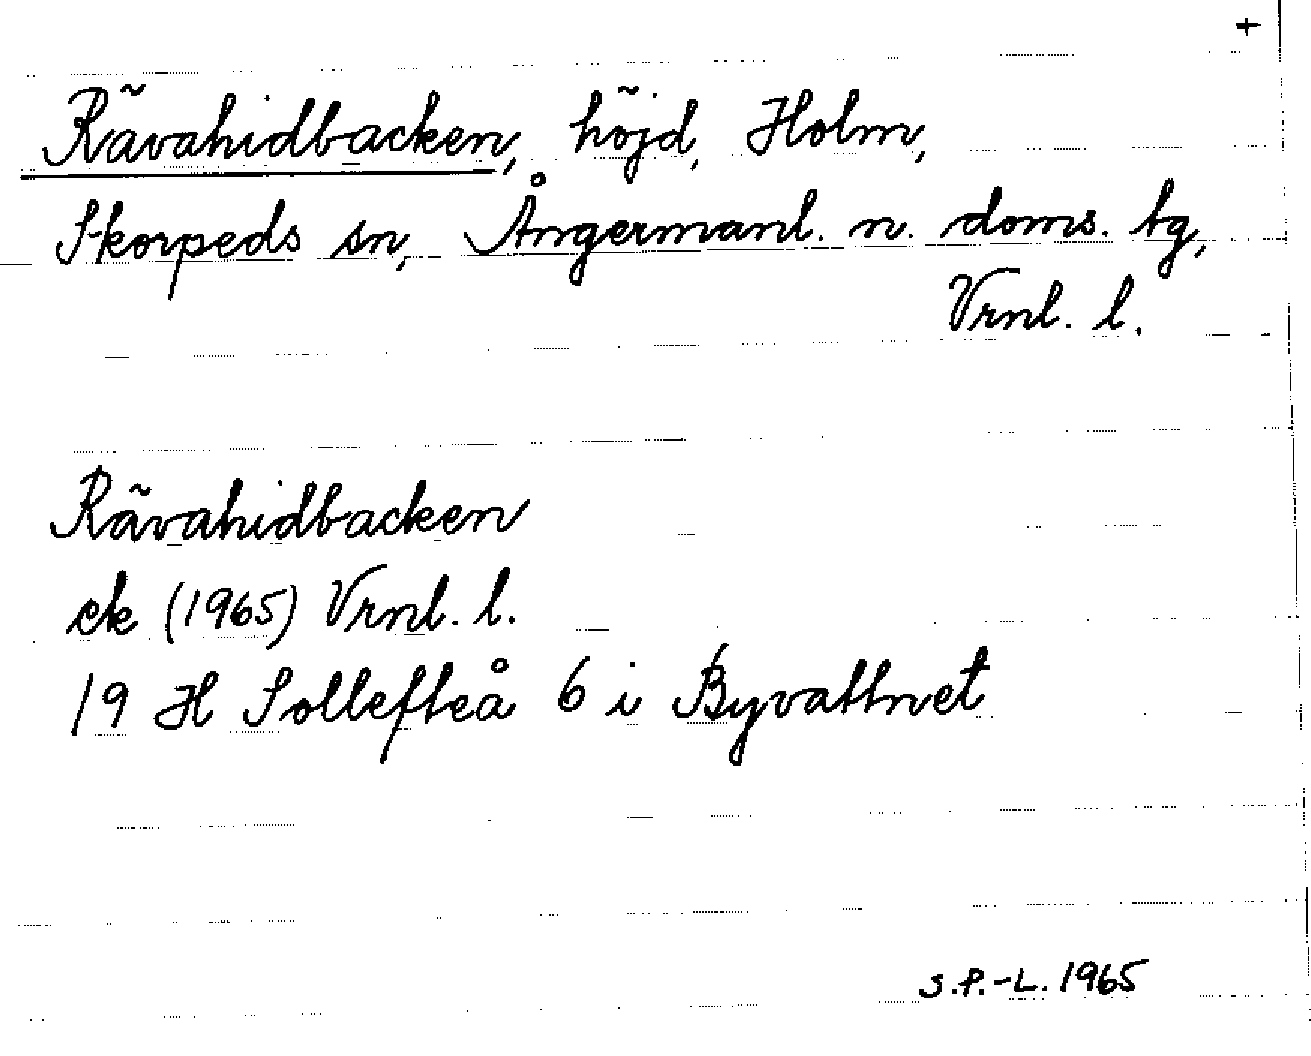 +
Rävahidbacken, höjd, Holm,
Skorpeds sn, Ångermanl. n. doms. tg,
Vrnl. l.
Rävahidbacken
ek (1965) Vrnl. l.
19 H Sollefteå 6 i Byvattnet
S.P.-L. 1965